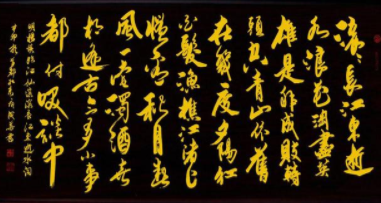 滚滚長江東逝
水浪花淘盡英
雄是非成敗轉
頭空青山依舊
在幾度夕陽紅
白髮漁樵江渚上
慣看秋月春
風一壺濁酒喜
相逢古今多少事
都付笑談中
明楊慎臨江仙滚滚長江東逝水詞